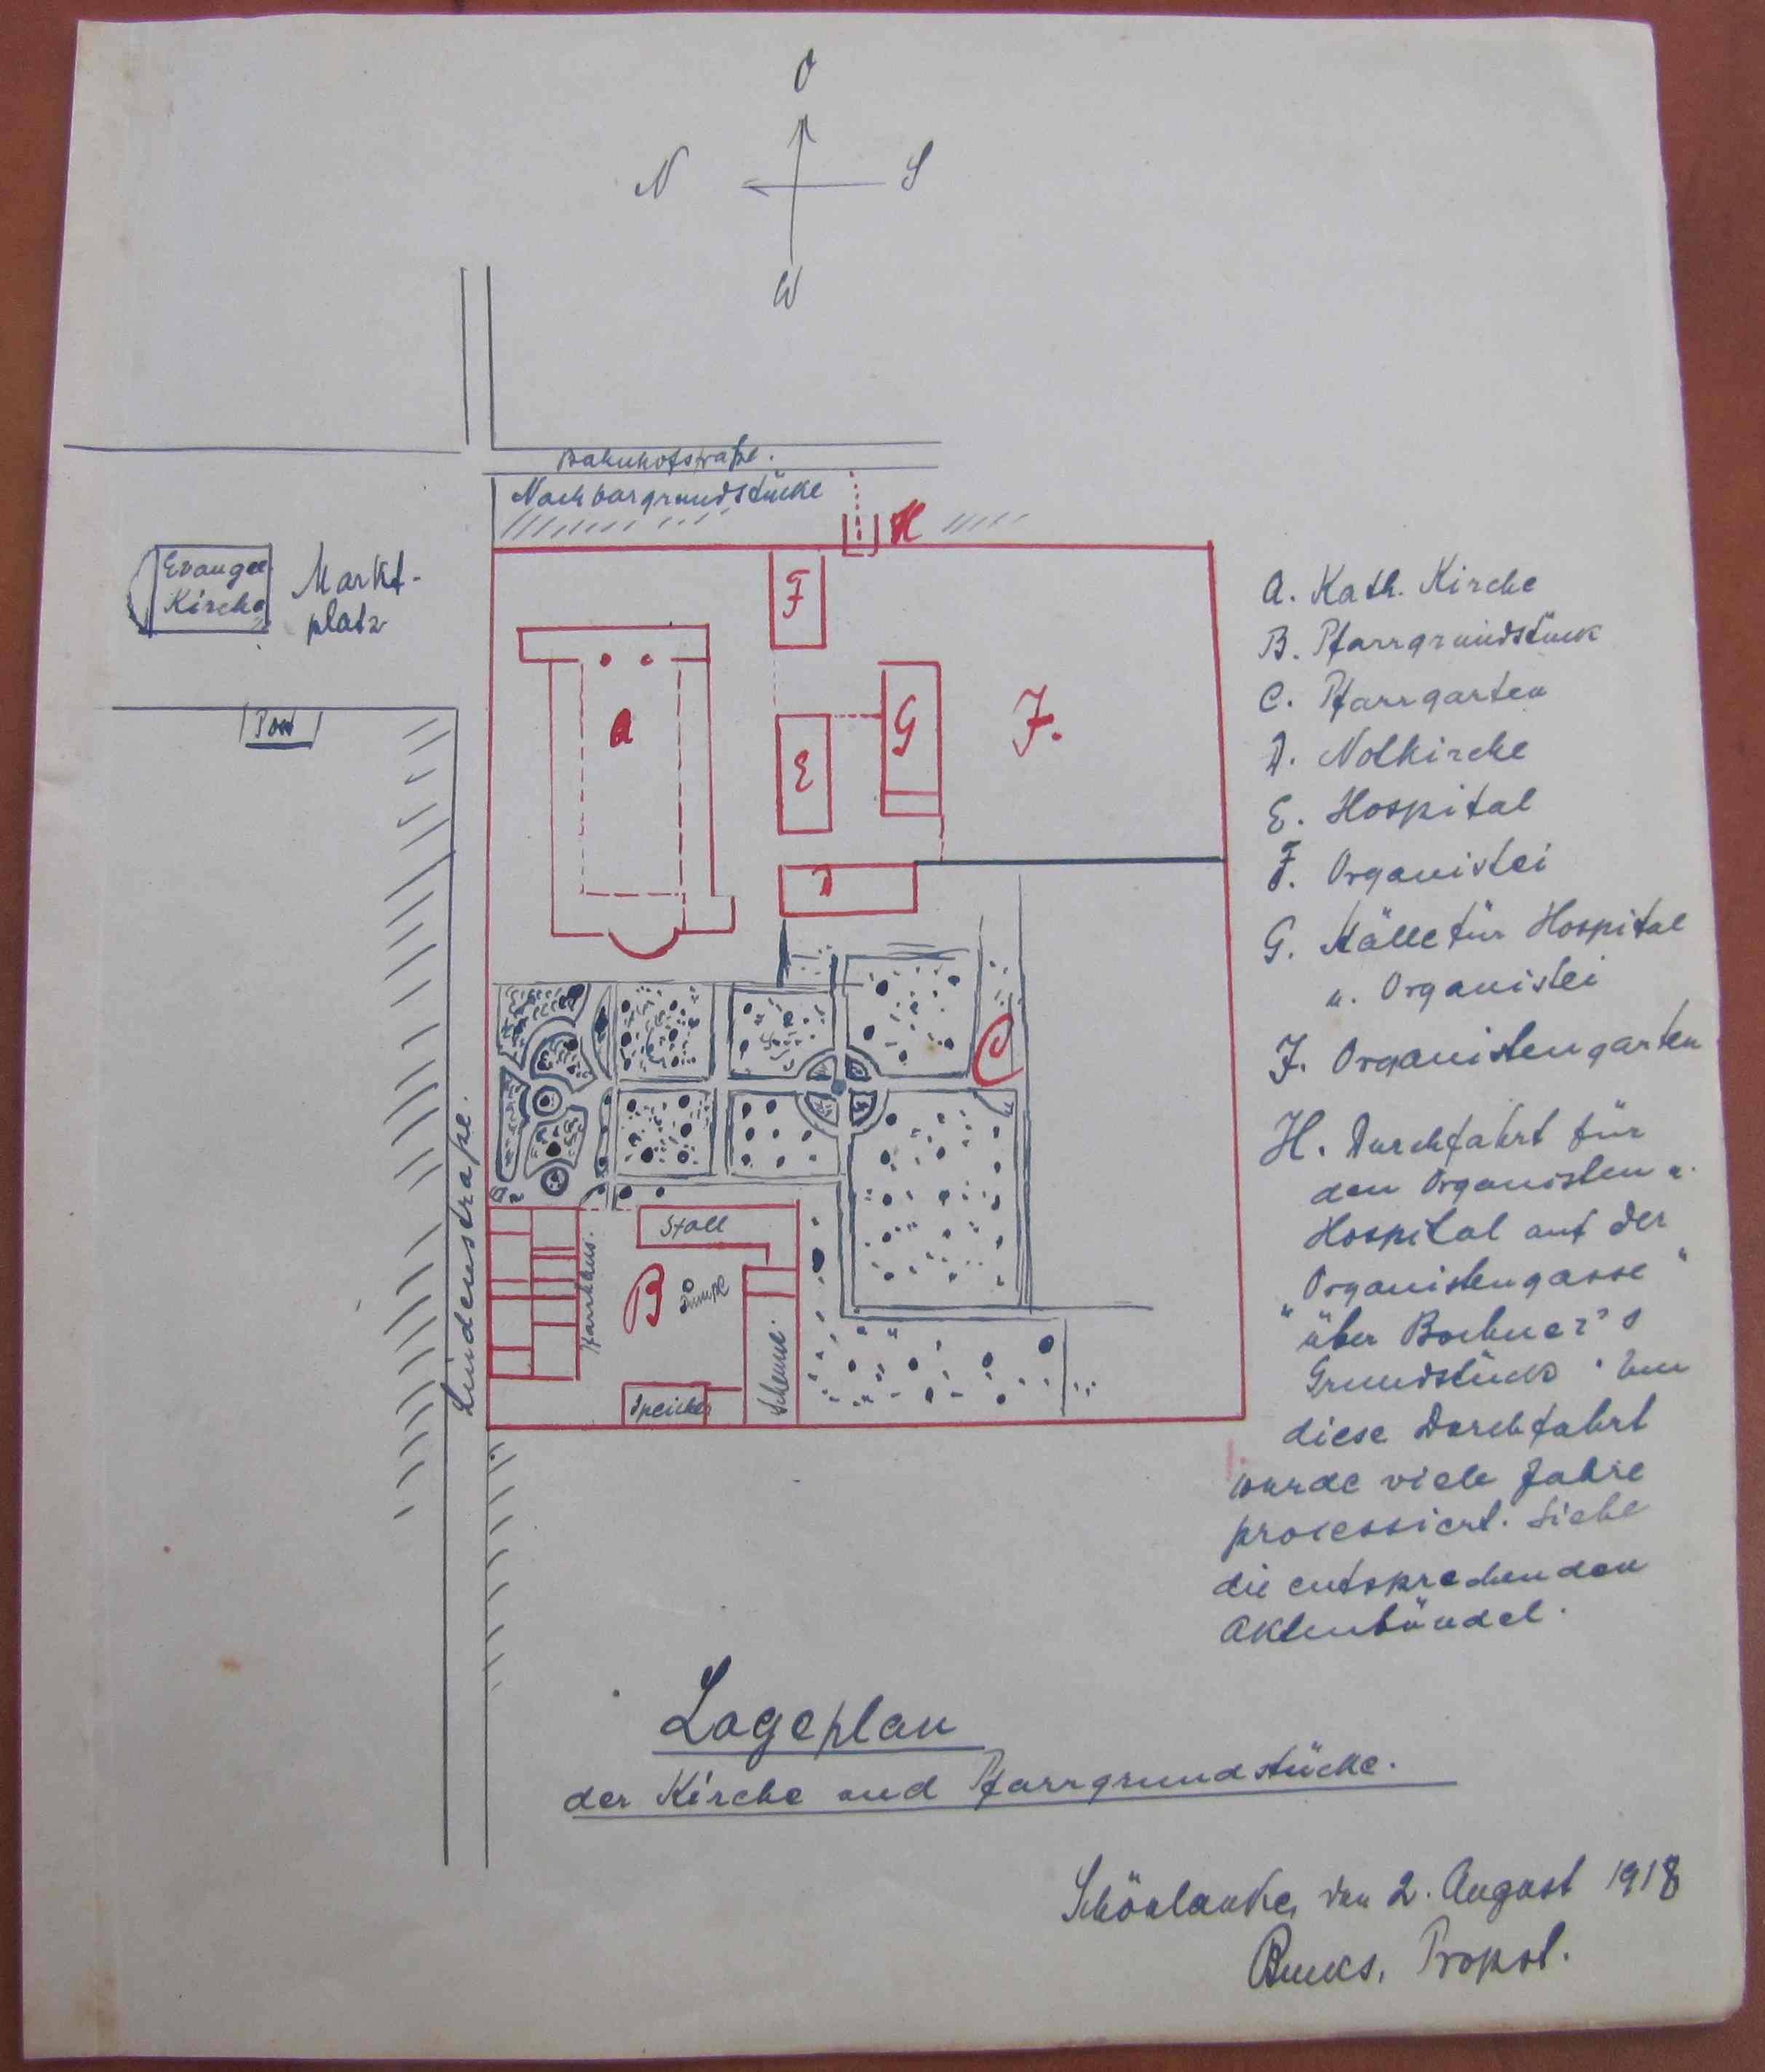 O
N S
W
Bahnhofstraße.
Nachbargrundstücke
H
Evangel
Kirche
Markt-
platz
Post
F
A
G
J.
E
D
C
Lindenstraße.
Stall
Pfarrhaus.
B
Pumpe
Scheune.
Speicher
A. Kath. Kirche
B. Pfarrgrundstück
C. Pfarrgarten
D. Notkirche
E. Hospital
F. Organistei
G. Ställe für Hospital
u. Organistei
J. Organistengarten
H. Durchfahrt für
den Organisten u.
Hospital auf der
"Organistengasse"
über
Grundstück.
diese Durchfahrt
wurde viele Jahre
processiert. Siehe
die entsprechenden
Aktenbündel.
Lageplan
der Kirche und Pfarrgrundstücke.
Schönlanke, den 2. August 1918
Propst.